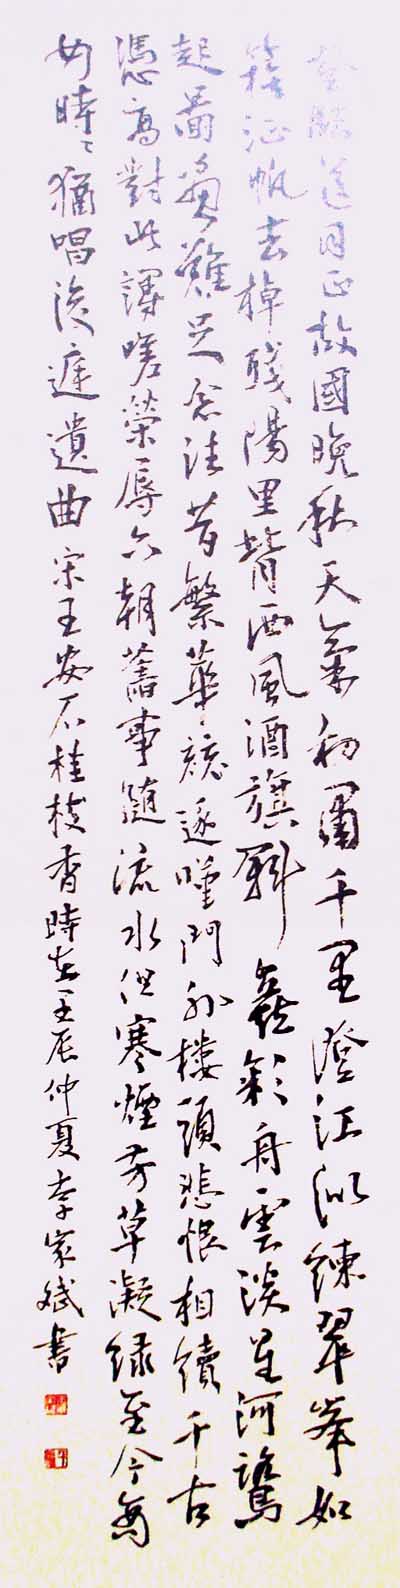 登臨送目正故國晚秋天氣初肅千里澄江似練翠峯如
簇征帆去棹殘陽里背西風酒旗斜矗彩舟雲淡星河鷺
起啚畫難足念往昔繁華競逐嘆門外樓頭悲恨相續千古
憑高對此謾嗟榮辱六朝舊事隨流水但寒煙芳草凝緑至今商
女時〻猶唱後庭遺曲宋王安石桂枝香時在壬辰仲夏李家斌書